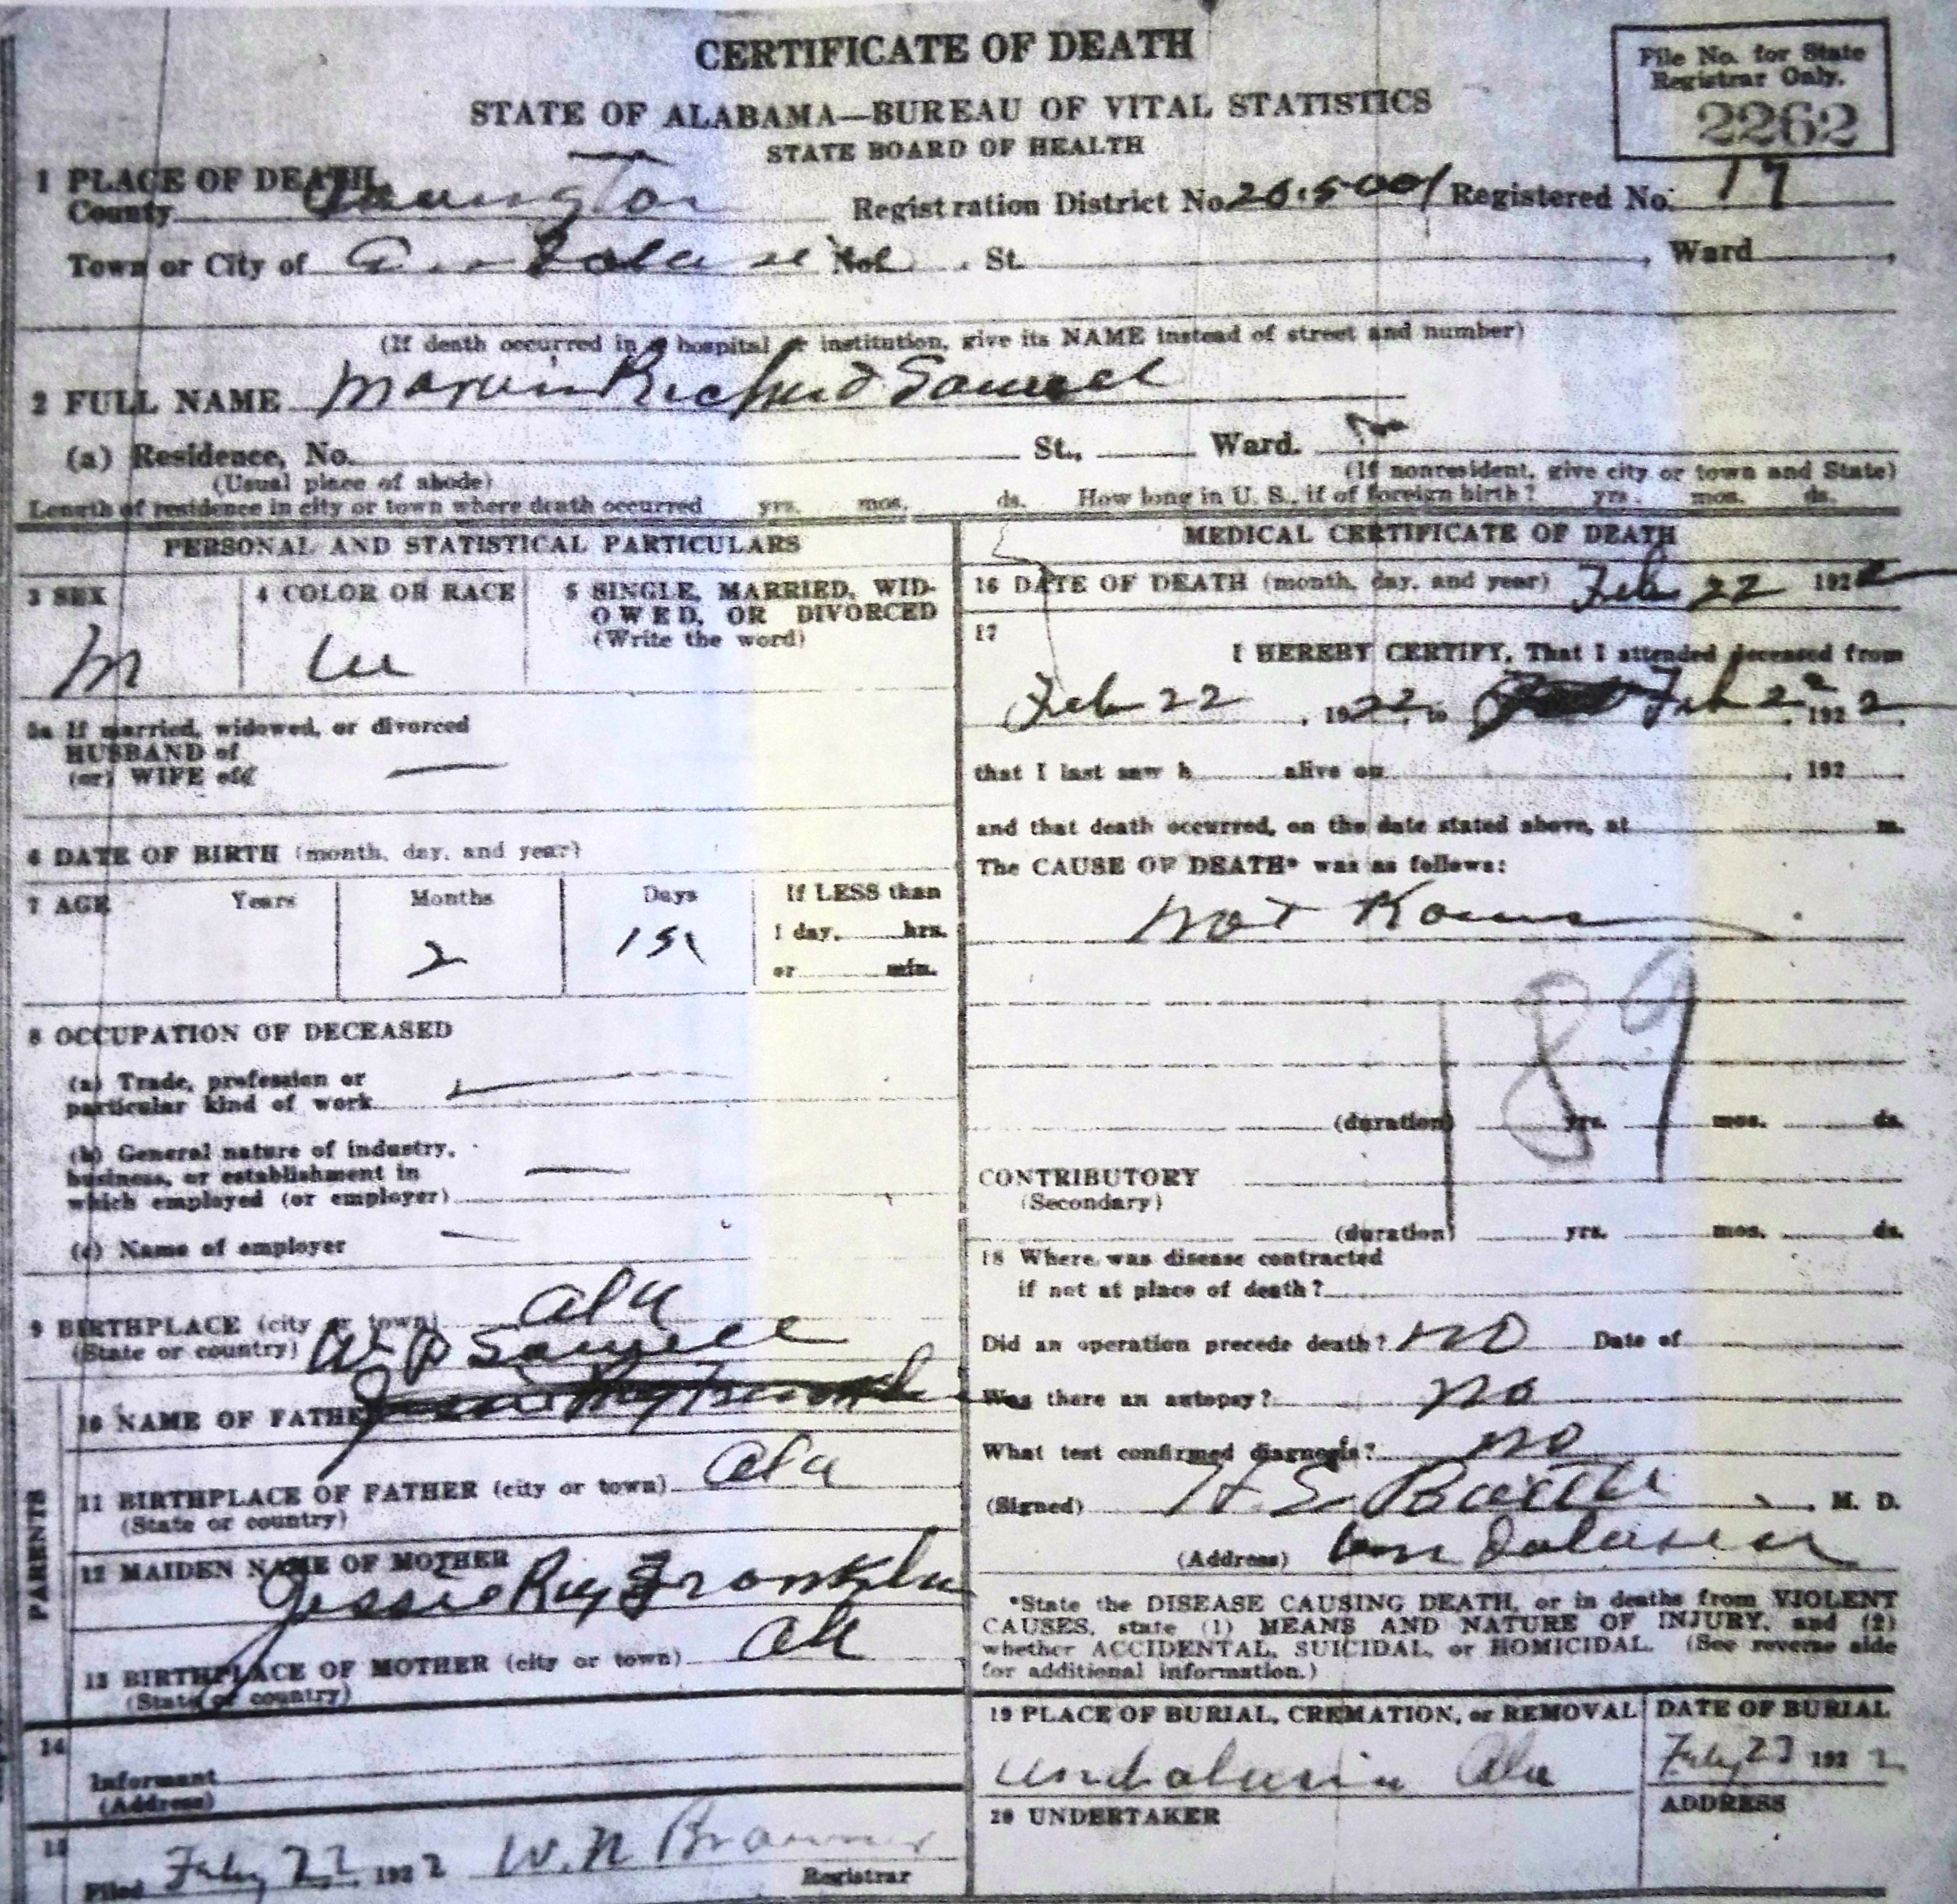 CERTIFICATE OF DEATH
STATE OF ALABAMA—BUREAU OF VITAL STATISTICS
STATE BOARD OF HEALTH
File No. for State
Registrar Only.
2262
1 PLACE OF DEATH
County Registration District No. Registered No. 17
Town or City of No. St. Ward
(If death occurred in a hospital or institution, give its NAME instead of street and number)
2 FULL NAME Marvin Richard
(a) Residence, No. St., Ward.
(Usual place of abode) (If nonresident, give city or town and State)
Length of residence in city or town where death occurred yrs. mos. ds. How long in U. S., if of foreign birth? yrs. mos. ds.
PERSONAL AND STATISTICAL PARTICULARS
3 SEX 4 COLOR OR RACE 5 SINGLE, MARRIED, WID-
OWED, OR DIVORCED
(Write the word)
M
5a If married, widowed, or divorced
HUSBAND of
(or) WIFE of
6 DATE OF BIRTH (month, day, and year)
7 AGE Years Months Days If LESS than
1 day, hrs.
2 or min.
8 OCCUPATION OF DECEASED
(a) Trade, profession or
particular kind of work
(b) General nature of industry,
business, or establishment in
which employed (or employer)
(c) Name of employer
9 BIRTHPLACE (city or town) Ala
(State or country)
PARENTS
10 NAME OF FATHER
11 BIRTHPLACE OF FATHER (city or town) Ala
(State or country)
12 MAIDEN NAME OF MOTHER
Jessie Ray Franklin
13 BIRTHPLACE OF MOTHER (city or town) Ala
(State or country)
14
Informant
(Address)
15
Filed 1922 W. N
Registrar
MEDICAL CERTIFICATE OF DEATH
16 DATE OF DEATH (month, day, and year) Feb 22 1922
17
I HEREBY CERTIFY, That I attended deceased from
Feb 22, 1922, to Feb 22, 1922
that I last saw h alive on , 192
and that death occurred, on the date stated above, at m.
The CAUSE OF DEATH* was as follows:
Not
189
(duration) yrs. mos. ds.
CONTRIBUTORY
(Secondary)
(duration) yrs. mos. ds.
18 Where was disease contracted
if not at place of death?
Did an operation precede death? NO Date of
Was there an autopsy? no
What test confirmed diagnosis? no
(Signed) , M. D.
(Address)
*State the DISEASE CAUSING DEATH, or in deaths from VIOLENT
CAUSES, state (1) MEANS AND NATURE OF INJURY, and (2)
whether ACCIDENTAL, SUICIDAL, or HOMICIDAL. (See reverse side
for additional information.)
19 PLACE OF BURIAL, CREMATION, or REMOVAL DATE OF BURIAL
Andalusia Ala 1922
20 UNDERTAKER ADDRESS